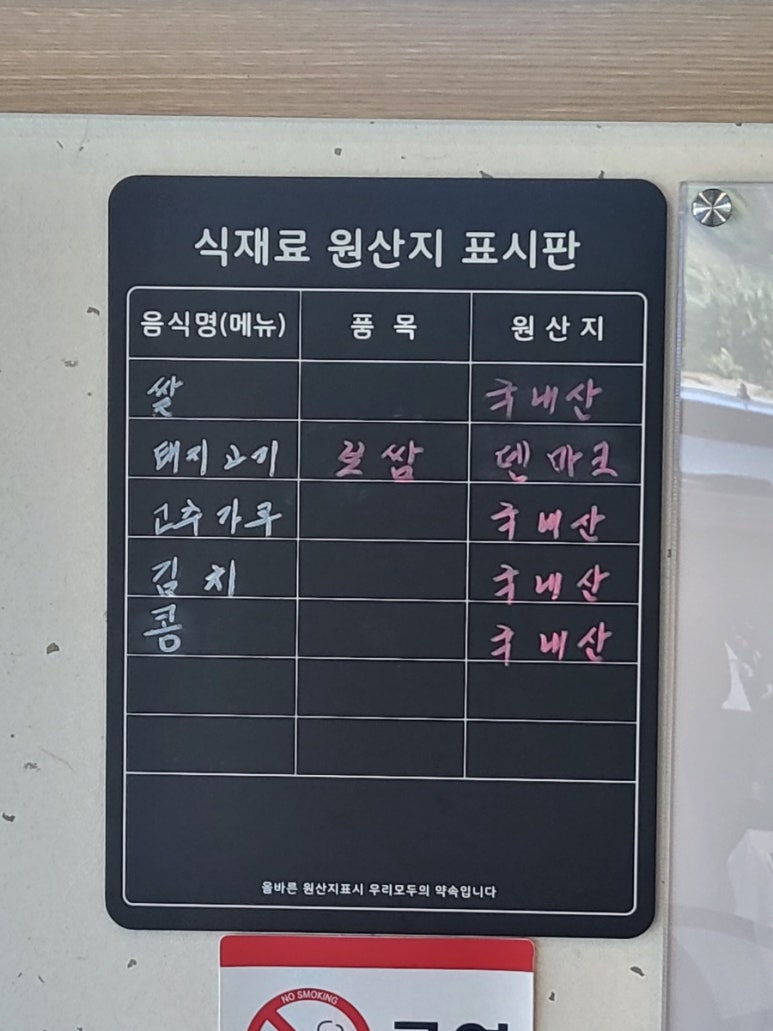 식재료 원산지 표시판
음식명(메뉴) 품 목 원 산 지
쌀 국내산
돼지고기 보쌈 덴마크
고추가루 국내산
김치 국내산
콩 국내산
올바른 원산지표시 우리모두의 약속입니다
NO SMOKING